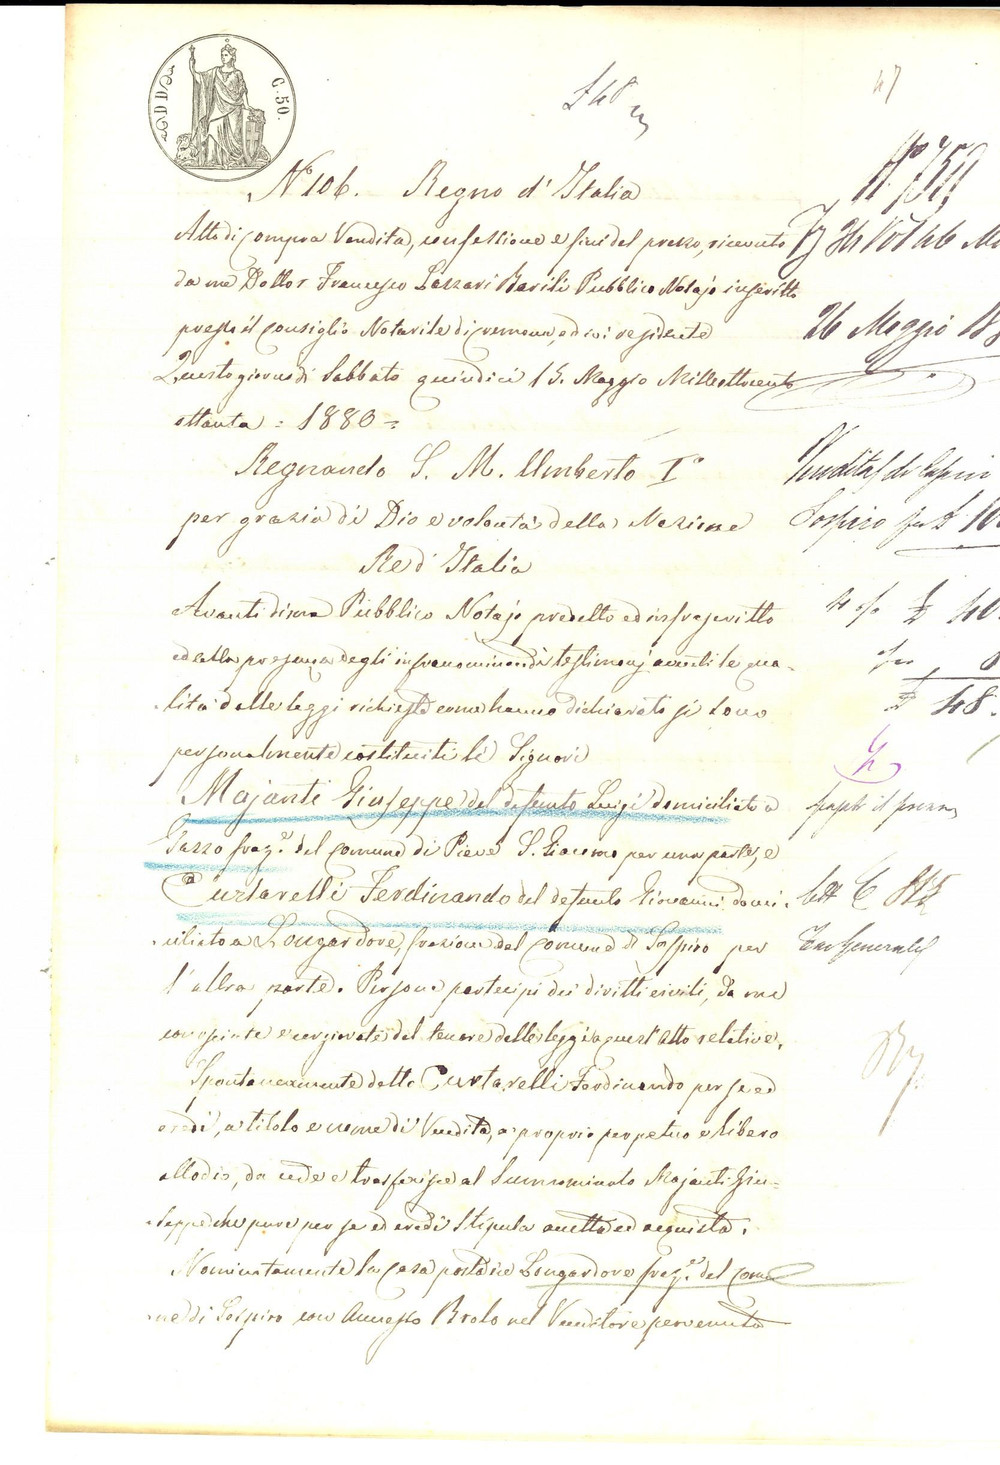 C. 50.
47
N.° 106. Regno d' Italia
Atto di compra Vendita, confessione e fine del prezzo, ricevuto
da me Dottor Francesco Lazzari Barili Pubblico Notajo inscritto
presso il Consiglio Notarile di Cremona, ed ivi residente
Questo giorno di Sabbato quindici 15. Maggio Milleottocento
ottanta = 1880 =
26 Maggio 18
Regnando S. M. Umberto I°
per grazia di Dio e volontà della Nazione
Re d' Italia
Vendita di
Sospiro per £
Avanti di me Pubblico Notajo predetto ed infrascritto
ed alla presenza degli infranominandi testimonj aventi le qua-
lità dalle leggi richieste come hanno dichiarato si sono
personalmente costituiti li Signori
£ 40.
£ 48.
Majanti Giuseppe del defunto Luigi domiciliato a
Gazzo fraz.e del comune di Pieve S. Giacomo per una parte, e
Curtarelli Ferdinando del defunto Giovanni domi-
ciliato a Longardore, frazione del comune di Sospiro per
l'altra parte. Persone partecipi dei diritti civili, da me
conosciute e cerziorate del tenore delle leggi a quest'Atto relative.
Spontaneamente detto Curtarelli Ferdinando per se ed
eredi, a titolo e nome di Vendita, a proprio perpetuo e libero
allodio, da cede e trasferisce al Sunnominato Majanti Giu-
seppe che pure per se ed eredi stipula accetta ed acquista.
Nominatamente la Casa posta in Longardore fraz.e del comu-
ne di Sospiro con annesso Brolo nel Venditore pervenuta